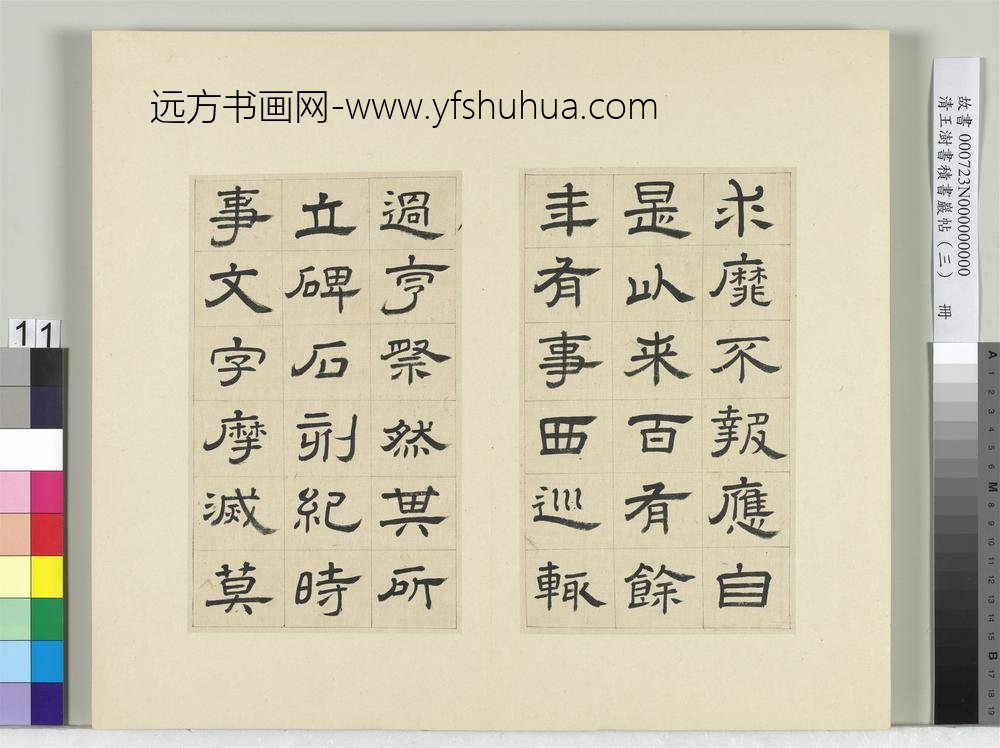 远方书画网-www.yfshuhua.com
求靡不報應自
是以來百有餘
年有事西巡輒
過亨祭然其所
立碑石刻紀時
事文字摩滅莫
故書 000723N000000000
清王澍書積書巖帖（三） 冊
11
A 1 2 3 4 5 M 8 9 10 11 12 13 14 15 B 17 18 19